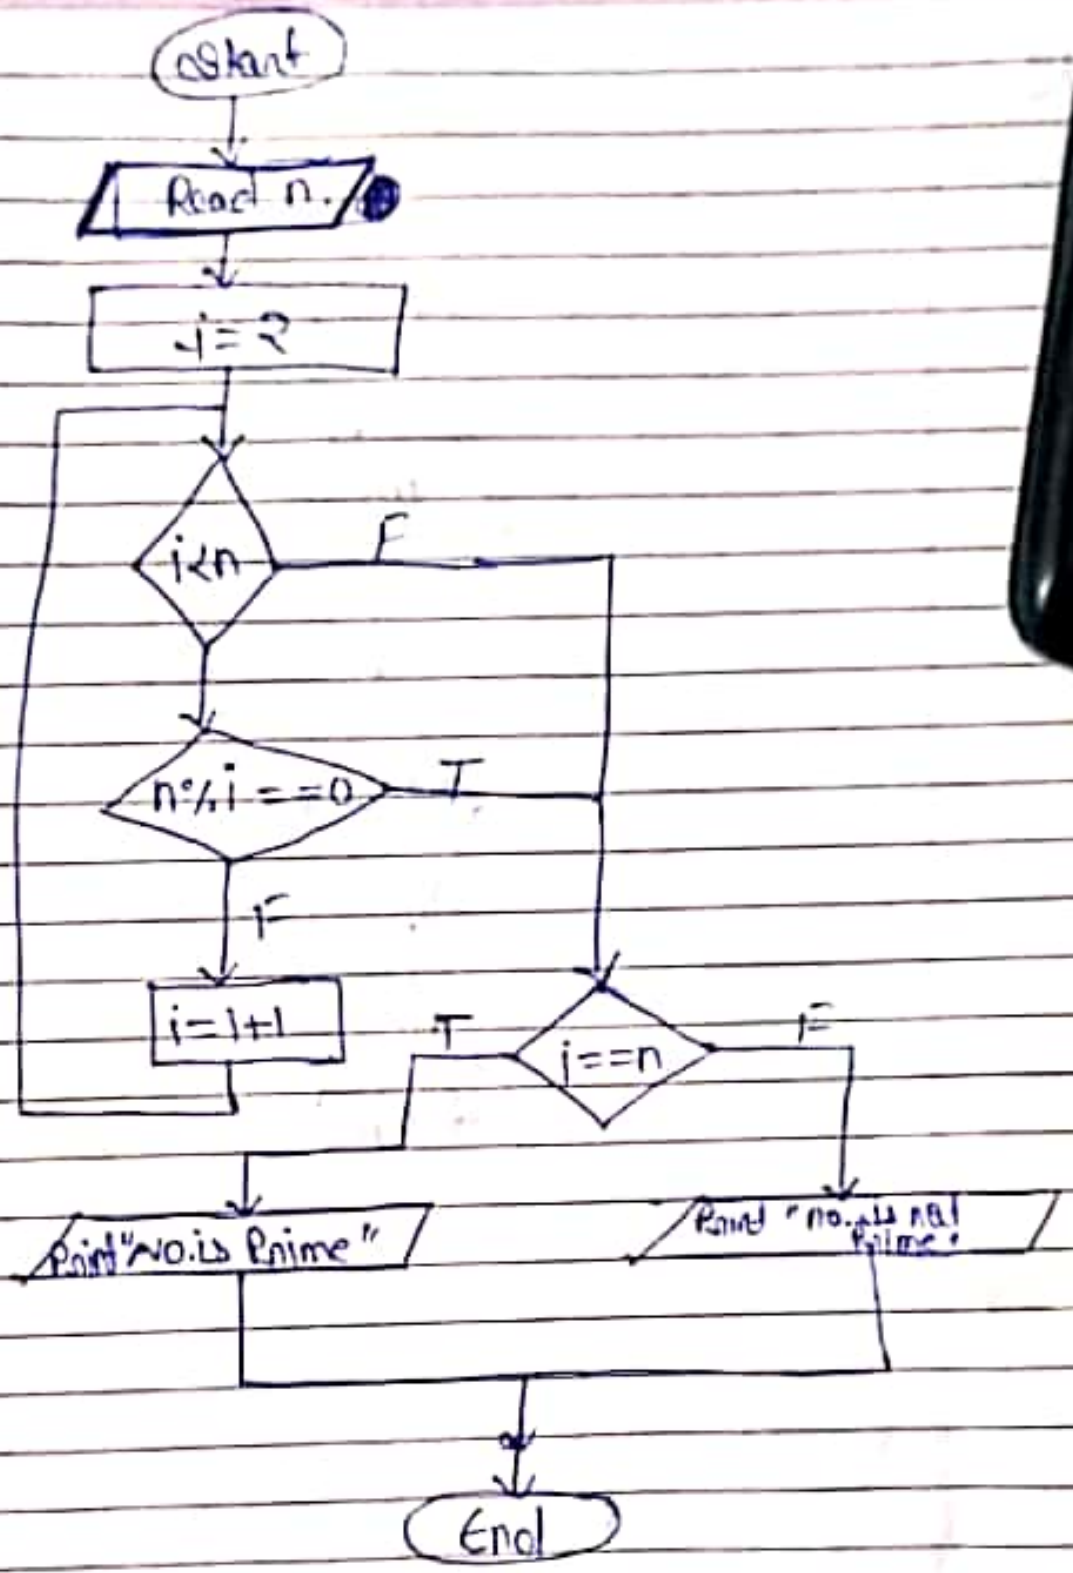 Start
Read n.
i=2
i<n
F
n%i==0
T
F
i=i+1
T
i==n
F
Print "No.is Prime"
Print "no. is not
Prime.
End